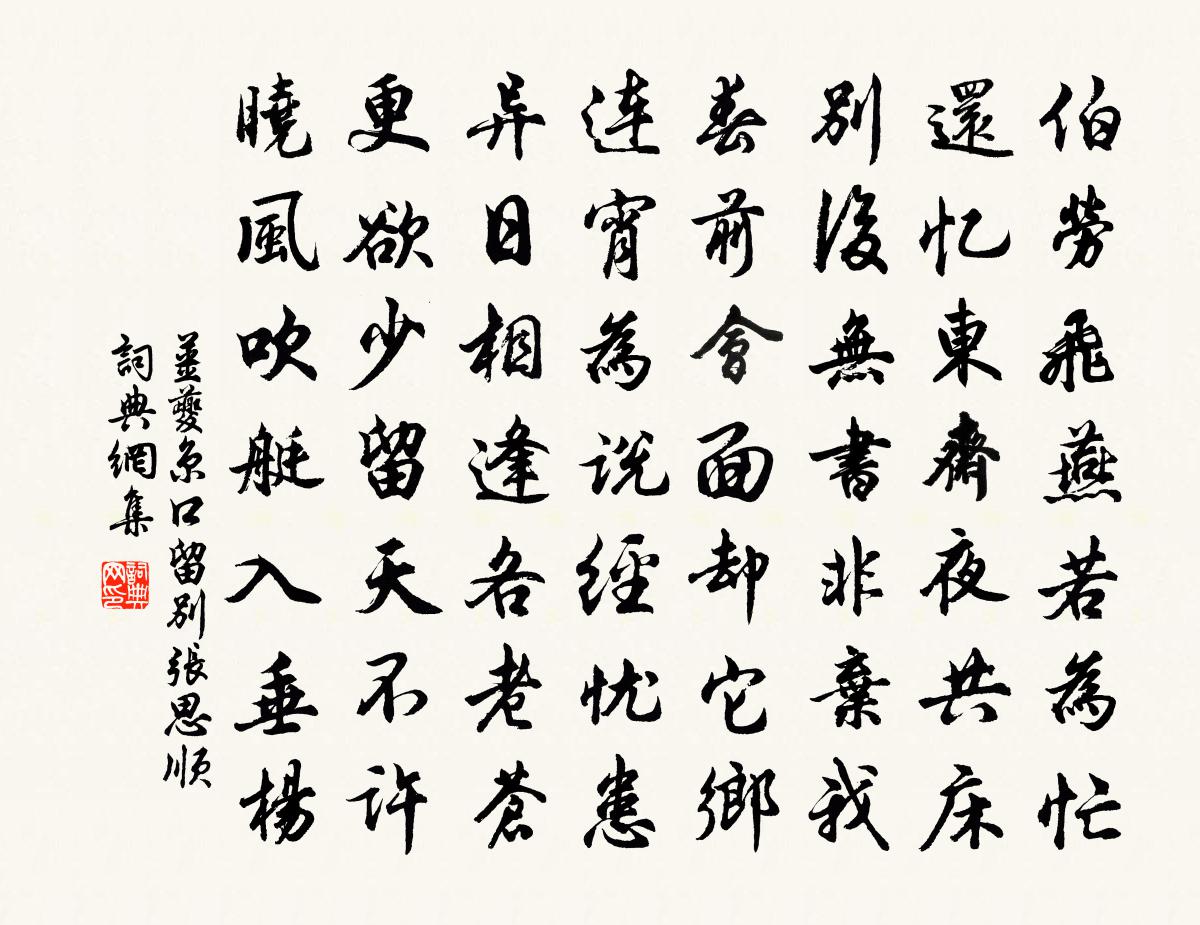 伯勞飛燕若為忙
還忆東齋夜共床
別後無書非棄我
春前會面却它鄉
連宵為説經忧患
异日相逢各老蒼
更欲少留天不許
曉風吹艇入垂楊
薑夔京口留別張思順
詞典網集
詞典网印